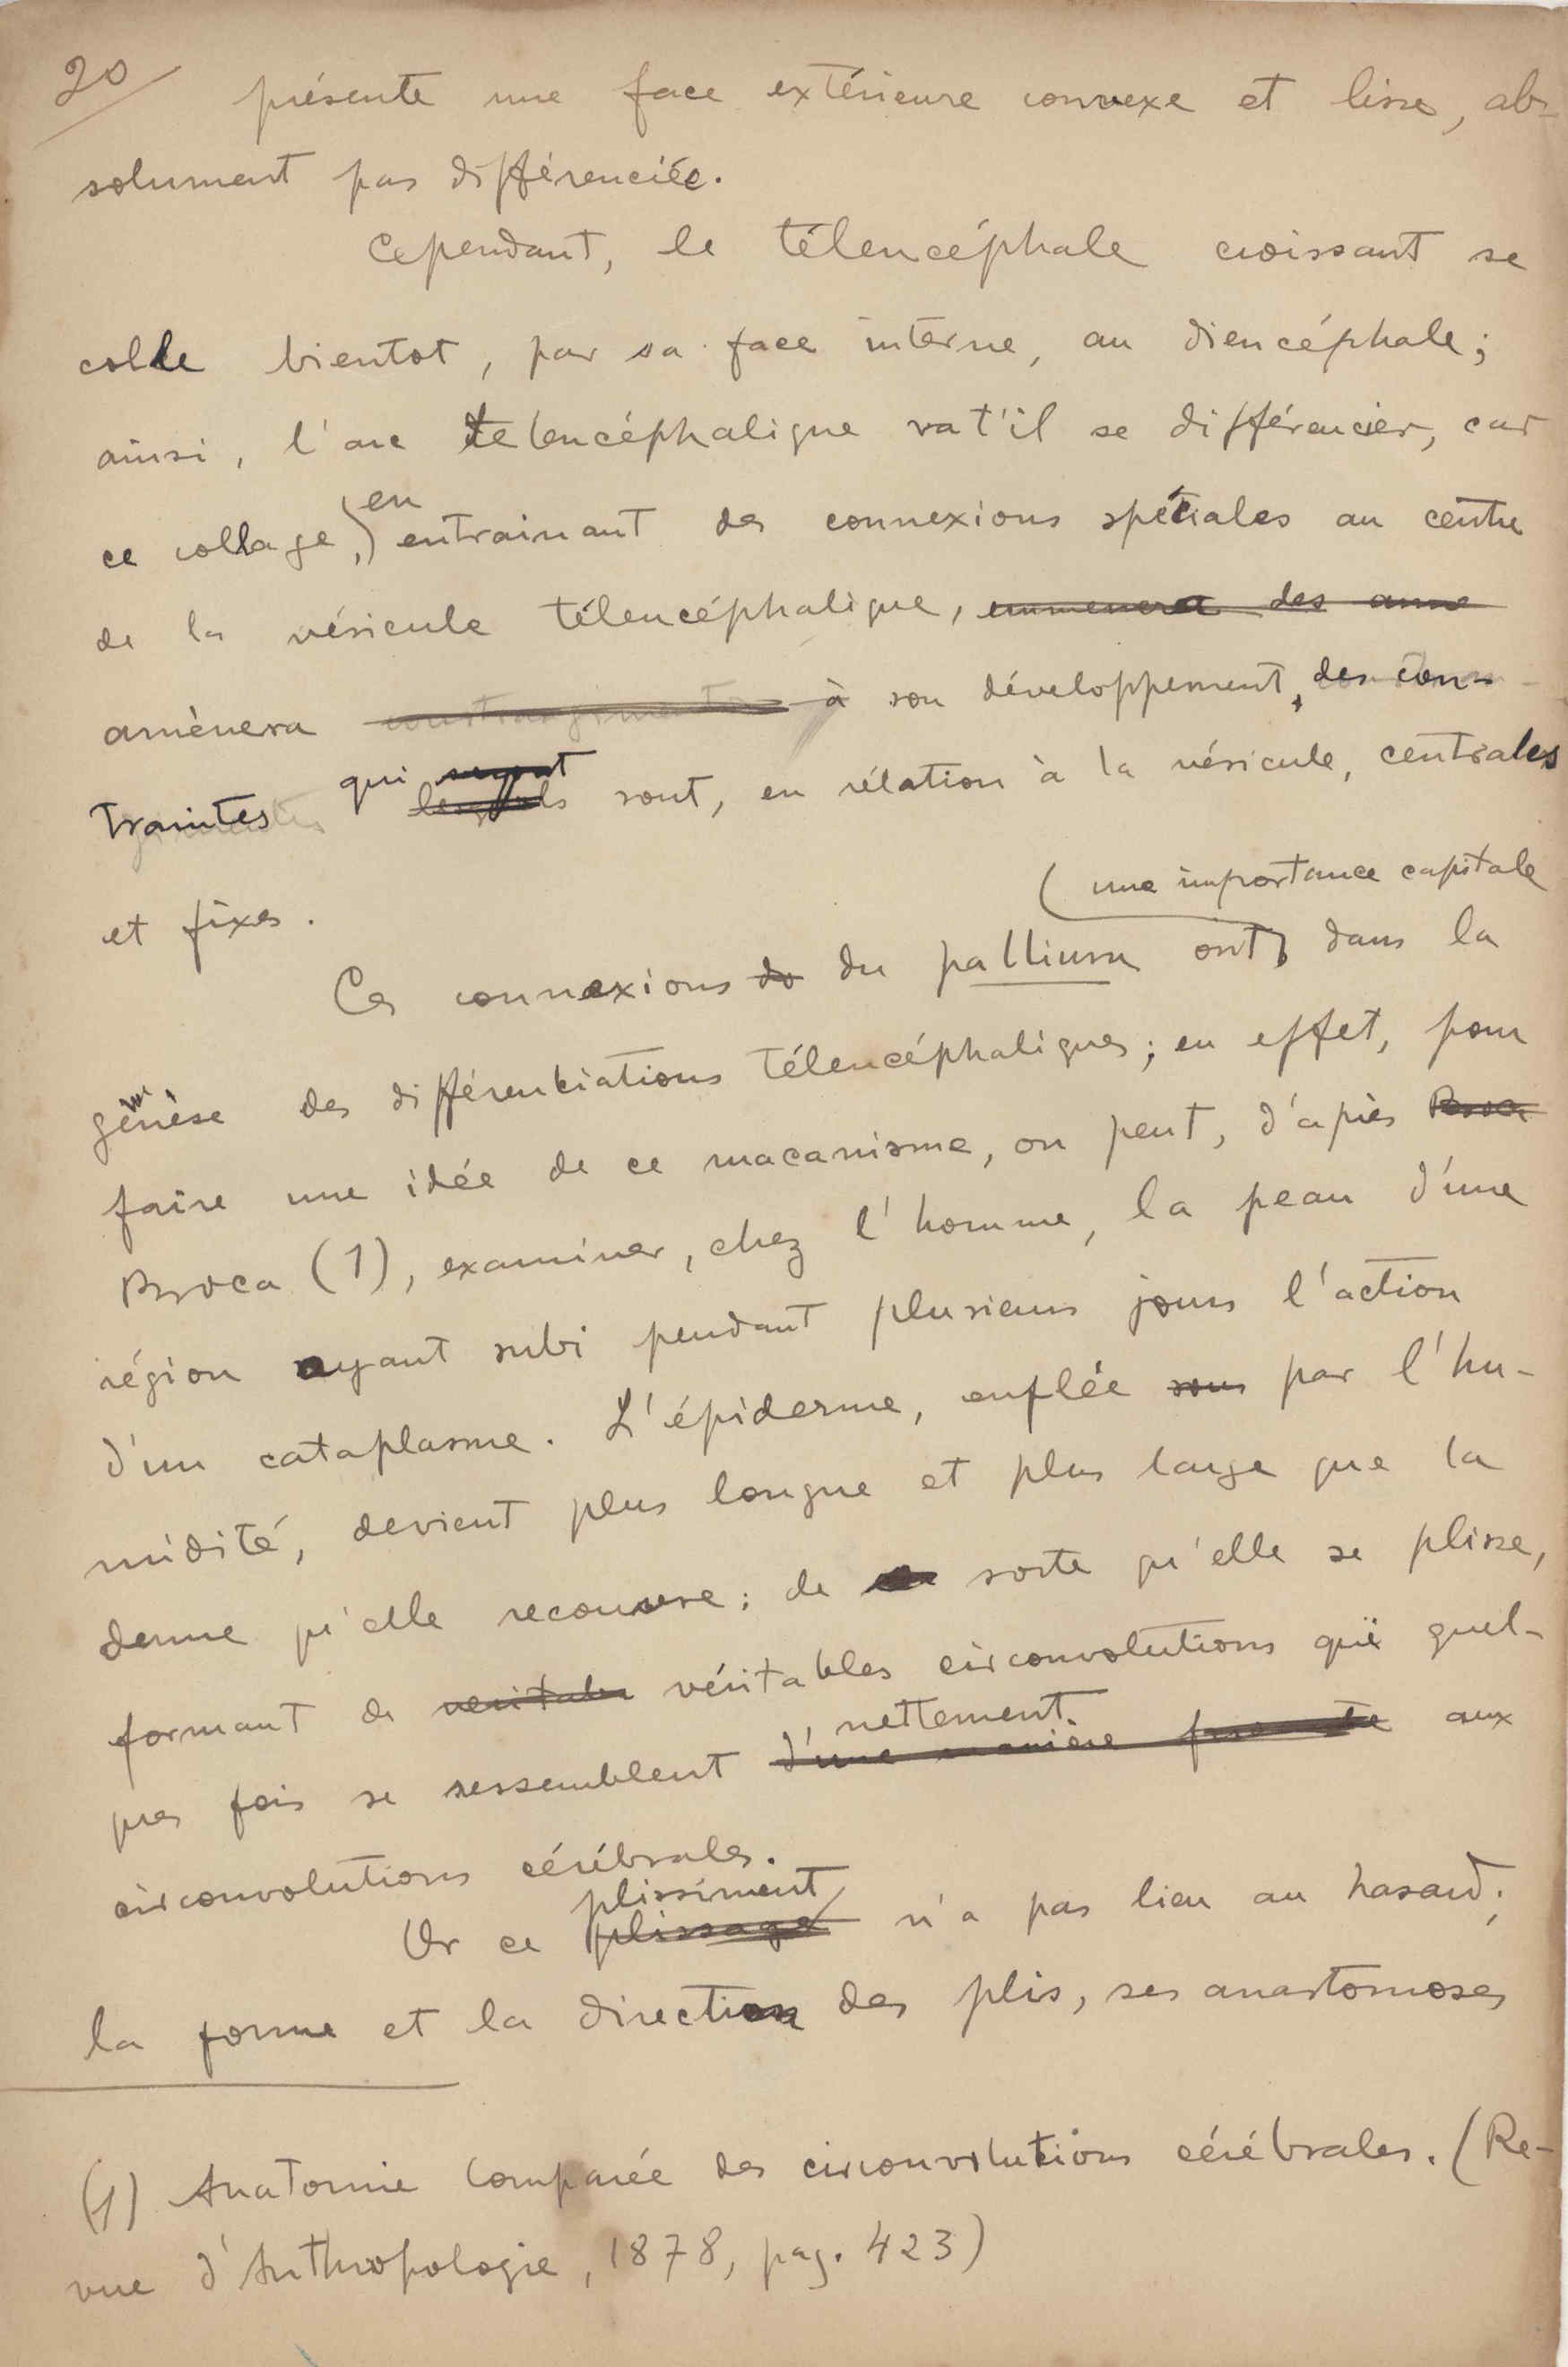 20
présente une face extérieure convexe et lisse, ab-
solument pas différenciée.
Cependant, le télencéphale croissant se
colle bientot, par sa face interne, au diencéphale;
ainsi, l'arc telencéphalique vat'il se différencier, car
en
ce collage, entrainant des connexions spéciales au centre
de la vésicule télencéphalique, emmenera des
amènera à son développement, des con-
traintes qui seront lesquels sont, en rélation à la vésicule, centrales
et fixes.
(une importance capitale
Ces connexions do du pallium ont, dans la
génèse des différentiations télencéphaliques; en effet, pour
faire une idée de ce macanisme, on peut, d'après Broca
Broca (1), examiner, chez l'homme, la peau d'une
région ayant subi pendant plusieurs jours l'action
d'un cataplasme. L'épiderme, enflée sous par l'hu-
midité, devient plus longue et plus large que la
derme qu'elle recouvre; de sorte qu'elle se plisse,
formant de veritables véritables circonvolutions qui quel-
nettement
ques fois se ressemblent d'une manière aux
circonvolutions cérébrales.
plissiment
Or ce plissage n'a pas lieu au hasard;
la forme et la direction des plis, ses anastomoses
(1) Anatomie Comparée des circonvolutions cérébrales. (Re-
vue d'Anthropologie, 1878, pag. 423)